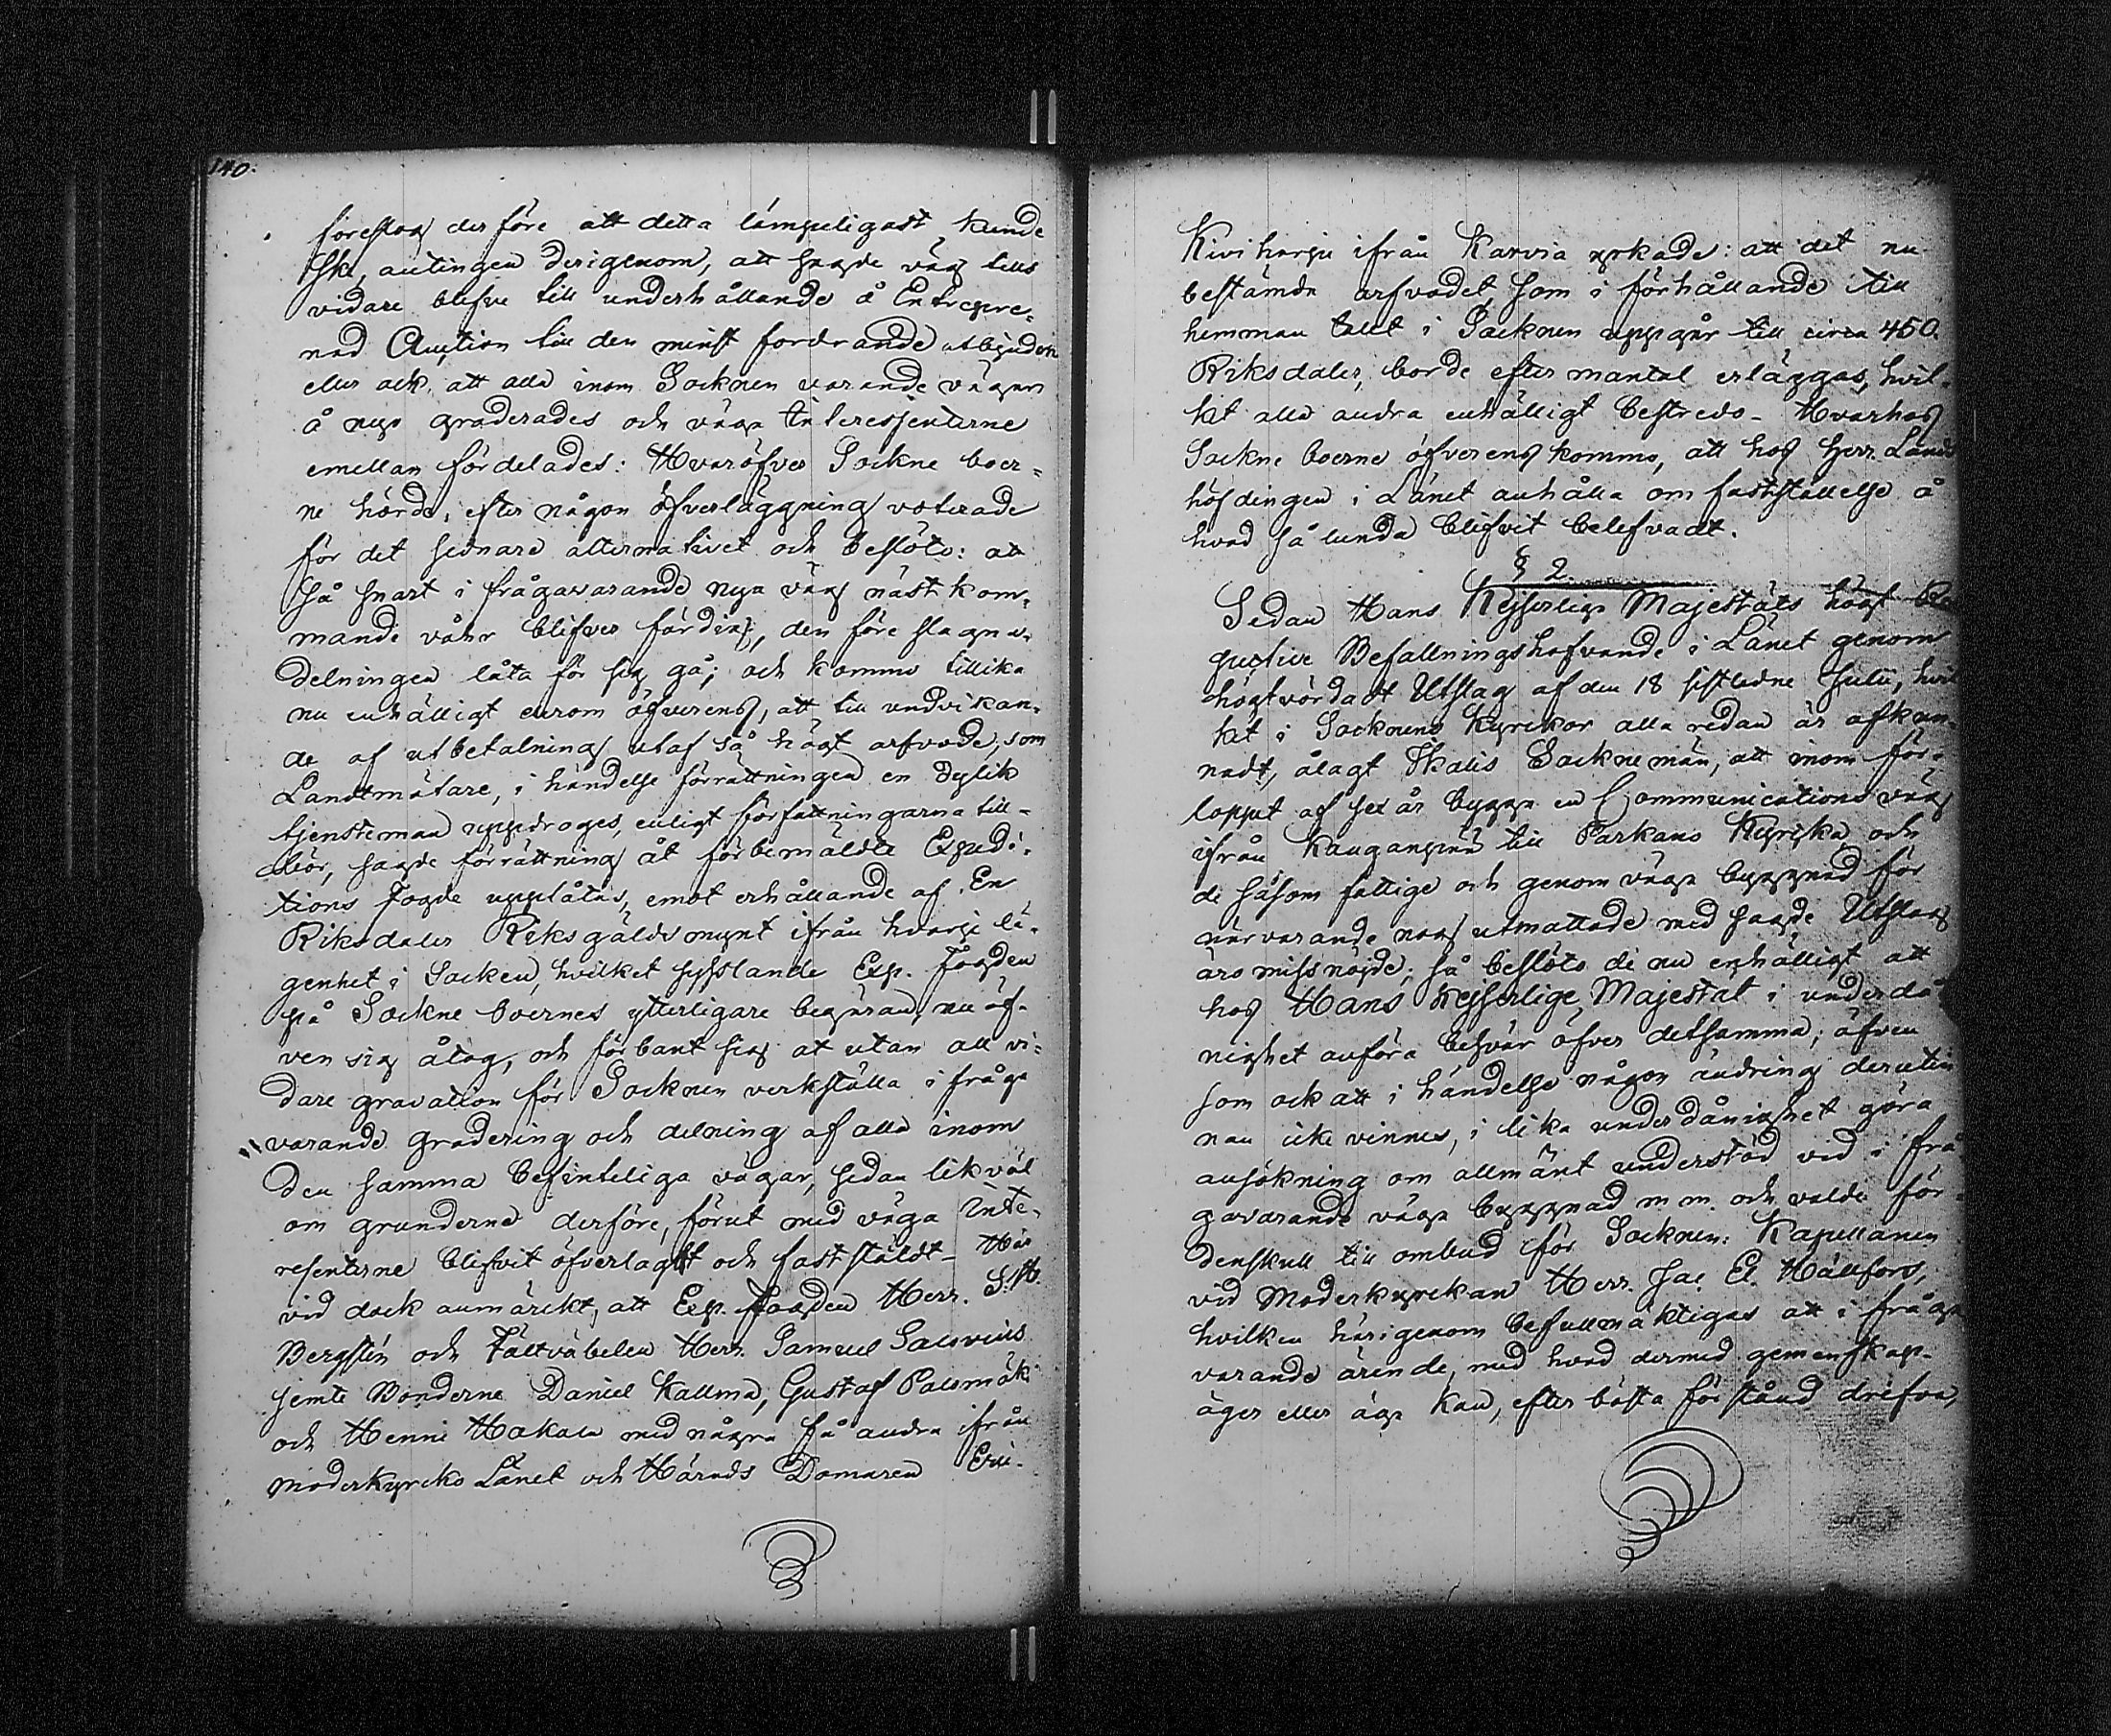 140.
föreslog derföre att detta lämpeligast kunde
ske, antingen derigenom, att sagde väg tills
vidare blefve till underhållande å Entrepre-
nad Auction till den minst fordrande utbjuden
eller ock, att alla inom Socknen varande vägar
å nyo graderades och väga Interessenterne
emellan fördelades: Hvaröfver Sockne boer-
ne hörde, efter någon öfverläggning voterade
för det sednare alternativet och beslöto: att
så snart i frågavarande nya väg nästkom-
mande vår blifver färdig, den före slagna
delningen låta för sig gå; och kommo tillika
nu enhälligt everom öfverens, att till undvikan-
de af utbetalning utaf så högt arfvode, som
Landtmätare, i händelse förrättningen en dylik
tjensteman uppdroges, enligt författningarna till-
hör, sagde förrättning åt förbemäldte Expedi-
tions Fogde upplåtas, emot erhållande af En
Riksdaler Riksgälds mynt ifrån hvarje lä-
genhet i Socken, hvilket sysslande Exp. Fogden
på Sockne boernes ytterligare begäran, nu öf-
ven sig åtog, och förbant sig at utan all vi-
dare gravation för Socknen verkställa i fråga
varande gradering och delning af alla inom
den samma befinteliga vägar, sedan likväl
om grunderne derföre, förut med väga Inte-
resenterne blifvit öfverlagt och fastställdt - Här
vid dock anmärckt, att Exp. Fogden Herr. S. H.
Bergstén och Fältväbelen Herr. Samuel Salovius
jemte Bönderne Daniel Kallma, Gustaf Palomäki
och Henni Hakala med några få andra ifrån
moderkyrko Länet och Härads Domaren Eric
Kiviharju ifrån Karvia yrkade: att det nu
bestämda arfvodet, som i förhållande till
hemman talet i Socknen uppgår till circa 450.
Riksdaler, borde efter mantal erläggas, hvil-
ket alla andra enhälligt bestredo - Hvarhos
Sockne boerne öfverens kommo, att hos Herr. Lands
höfdingen i Länet anhålla om fastställelse å
hvad så lunda blifvit belefvadt.
§ 2.
Sedan Hans Kejserliga Majestäts högt
Befallningshafvande i Länet genom
högtvördadt Utslag af den 18 sistledne Julii, hvil
ket i Socknens Kyrckor alla redan är afkun-
nadt, ålagt Ikalis Socknemän, att inom för-
loppet af sex år bygga en Communications väg
ifrån Kauganperä till Parkano Kyrcka, och
de såsom fattige och genom väga byggnad för
närvarande nog utmattade med sagde Utslag
äro missnöjde; så beslöto de nu enhälligt att
hos Hans Kejserlige Majestät i underdå
nighet anföra besvär öfver detsamma; äfven
som ock att i händelse någon ändring derutin
nan icke vinnes, i lika underdånighet göra
ansökning om allmänt understöd vid i frå
gavarande väga byggnad m m. och valde för-
denskull till ombud för Socknen: Kapellanen
vid Moderkyrckan Herr. Jac. El. Hällfors,
hvilken härigenom befullmäktigas att i fråga
varande ärende, med hvad dermed gemenskap
äger eller äga kan, efter bästa förstånd drifva,